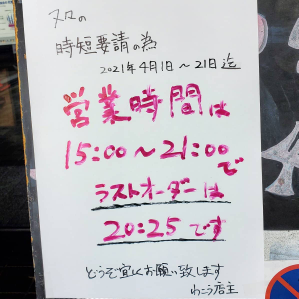 又々の
時短要請の為
2021年4月1日～21日迄
営業時間は
15:00～21:00で
ラストオーダーは
20:25です
どうぞ宜しくお願い致します
わこう店主